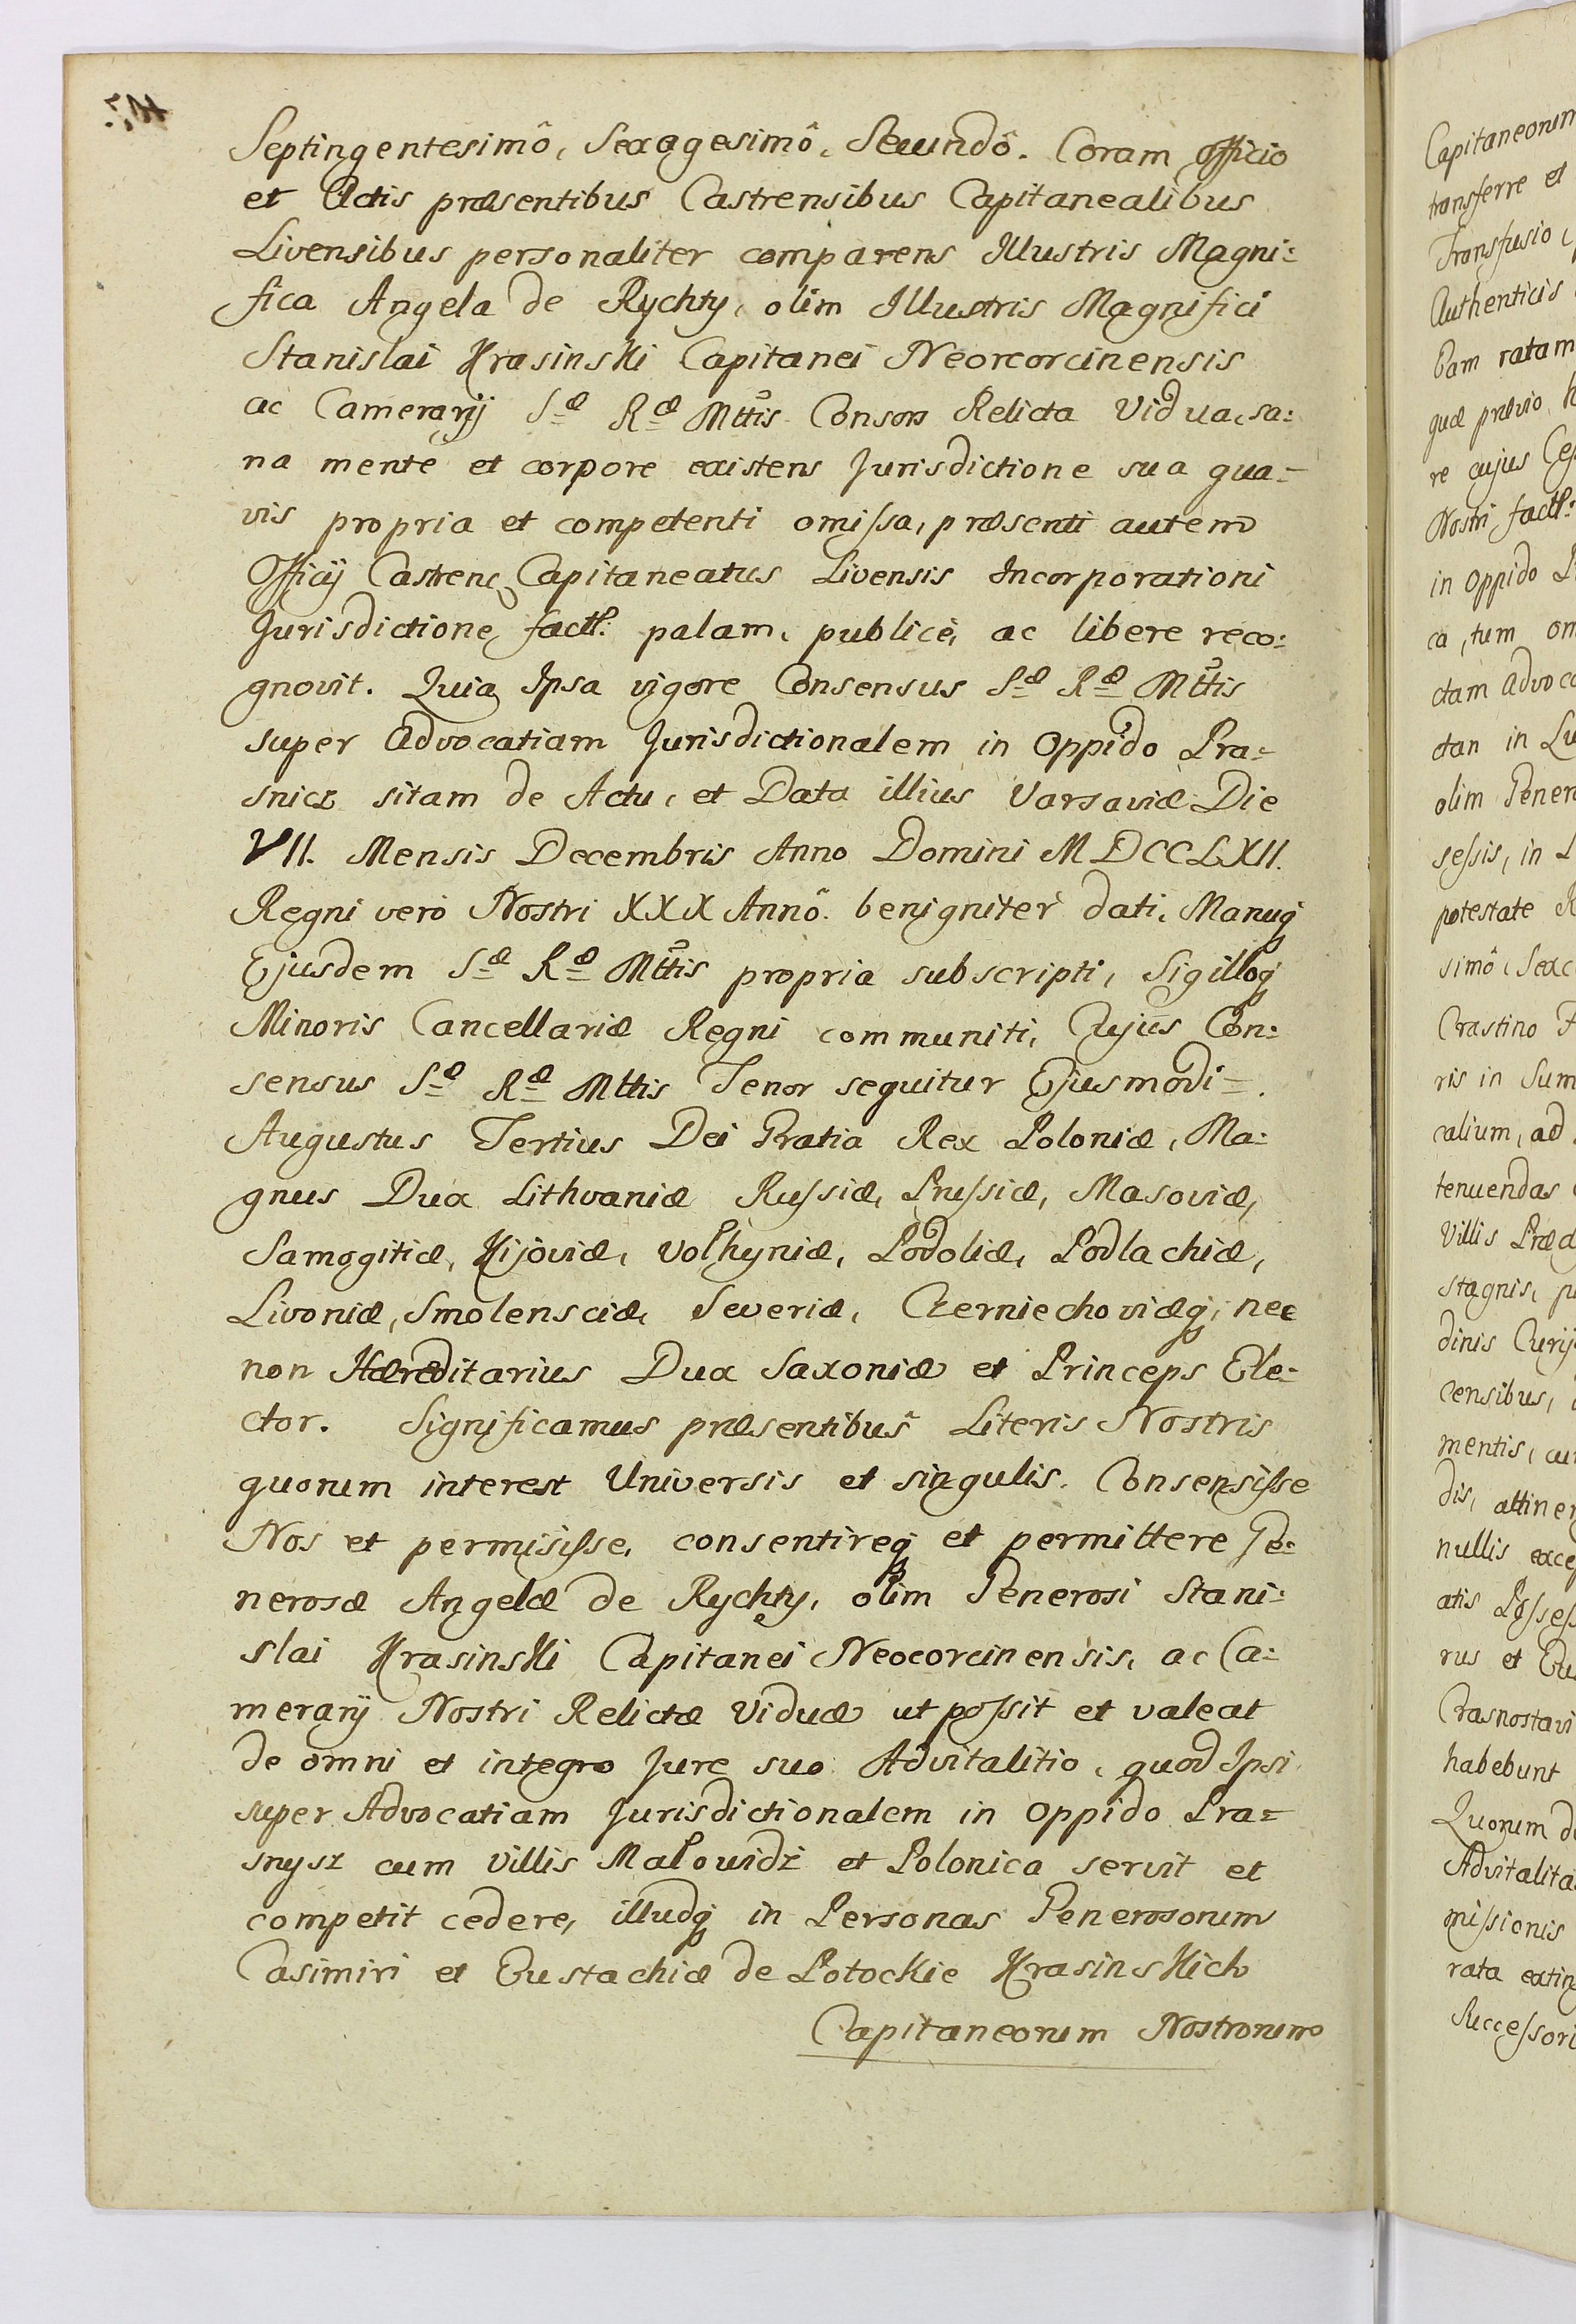 Septingentesimô, Sexagesimô, Secundô. Coram Officio
et Actis præsentibus Castrensibus Capitanealibus
Livensibus personaliter comparens Illustris Magni:
fica Angela de Rychty, olim Illustris Magnifici
Stanislai Krasinski Capitanei Neorcorcinensis
ac Camerarij Sæ Ræ Mttis Consors Relicta Vidua, sa:
na mente et corpore existens Jurisdictione sua qua=
vis propria et competenti omissa, præsenti autem
Officij Castrens Capitaneatus Livensis Incorporationi
Jurisdictione, factt: palam, publicè, ac libere reco:
gnovit. Quia Ipsa vigore Consensus Sæ Ræ Mttis
super Advocatiam Jurisdictionalem in Oppido Pra=
snicz sitam de Actu, et Data illius Varsaviæ Die
VII. Mensis Decembris Anno Domini MDCCLXII.
Regni verò Nostri XXX Annô. benigniter dati, Manuq
Ejusdem Sæ Ræ Mttis propria subscripti, Sigilloq
Minoris Cancellariæ Regni communiti, Cujus Con:
sensus Sæ Ræ Mttis Tenor sequitur Ejusmodi=.
Augustus Tertius Dei Gratia Rex Poloniæ, Ma:
gnus Dux Lithvaniæ Russiæ, Prussiæ, Masoviæ,
Samogitiæ, Kijoviæ, Volhyniæ, Podoliæ, Podlachiæ,
Livoniæ, Smolensciæ, Severiæ, Czerniechoviæq, nec
non Hæreditarius Dux Saxoniæ et Princeps Ele:
ctor. Significamus præsentibus Literis Nostris
quorum interest Universis et singulis. Consensisse
Nos et permisisse, consentireq et permittere Ge:
nerosæ Angelæ de Rychty, olim Generosi Stani:
slai Krasinski Capitanei Neocorcinensis, ac Ca:
merarij Nostri Relictæ Viduæ ut possit et valeat
de omni et integro Jure suo Advitalitio, quod Ipsi
super Advocatiam Jurisdictionalem in Oppido Pra=
snysz cum Villis Małowidz et Polonica servit et
competit cedere, illudq in Personas Generosorum
Casimiri et Eustachiæ de Potockie Krasinskich
Capitaneorum Nostrorum
Capitaneorum
transferre et
Transfusio,
Authenticis
Eam ratam
quæ prævio
re cujus
Nostri factt:
in Oppido
ca, tum
ctam Advoca
ctan in
olim Gener
sessis, in
potestate
simô, Sexa
Crastino
ris in Sum
calium, ad
tenuendas
Villis Præd
stagnis,
dinis
censibus,
mentis,
dis, attinen
nullis exce
atis Posses
rus et
Crasnostavi
habebunt
Quorum
Advitalita
missionis
rata extin
Successori